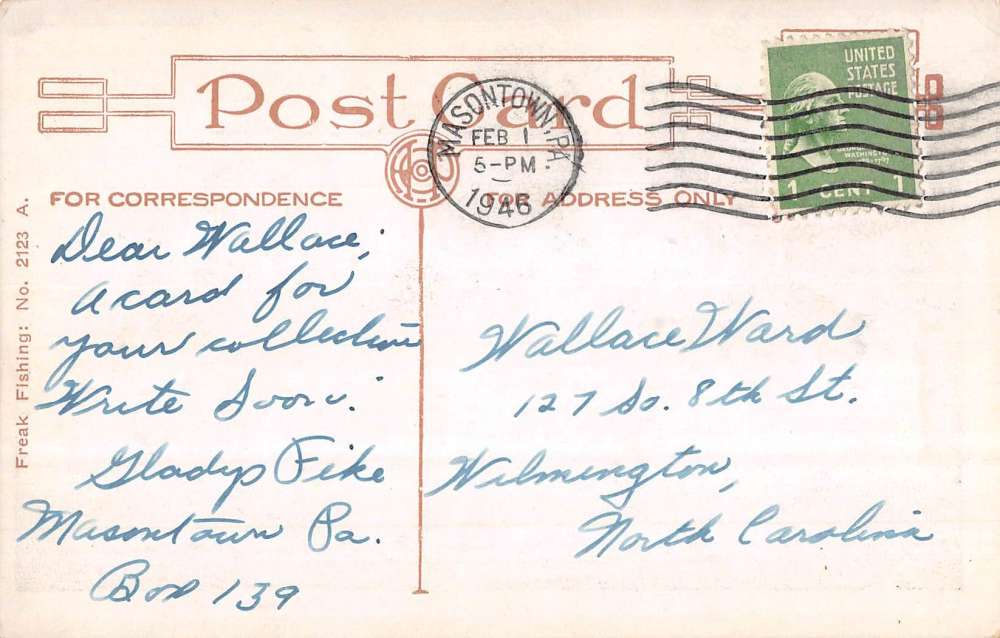 Post Card
MASONTOWN, PA.
FEB 1
5-PM
1946
UNITED
STATES
POSTAGE
GEORGE
WASHINGTON
1 CENT 1
FOR CORRESPONDENCE
FOR ADDRESS ONLY
Freak Fishing: No. 2123 A.
Dear Wallace;
A card for
your collection
Write Soon.
Gladys Fike
Masontown Pa.
Box 139
Wallace Ward
127 So. 8th St.
Wilmington,
North Carolina